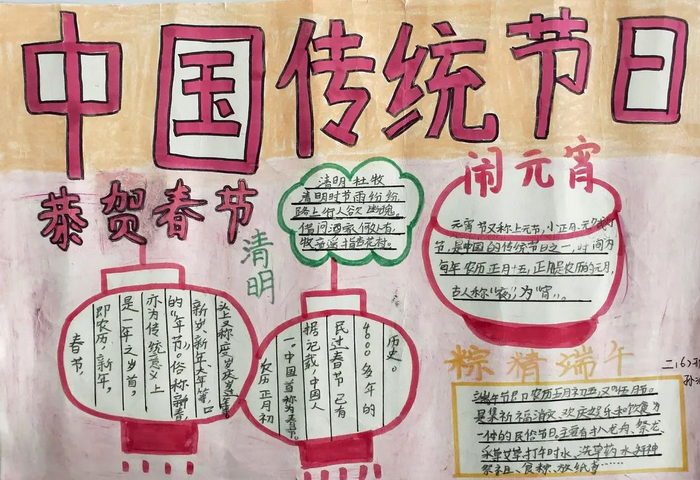 中国传统节日
恭贺春节
清明
清明 杜牧
清明时节雨纷纷
路上行人欲断魂。
借问酒家何处有
牧童遥指杏花村。
闹元宵
元宵节又称上元节，小正月、元夕或
节，是中国的传统节日之一，时间为
每年农历正月十五，正月是农历的元月，
古人称“夜”为“宵”。
春节，
即农历，新年，
是一年之岁首，
亦为传统意义上
的“年节”。俗称新春
新岁、新年、大年等，口
头上又称度岁
农历正月初
一。中国
据记载，中国人
民过春节已有
4000多年的
历史。
粽情端午
端午节
是集 祈福 欢庆娱乐和饮食为
一体的民俗节日。主要有扒龙舟、祭龙
采草艾草、打午时水、洗草药水
祭祖、食粽、放纸
二(6)班
孙